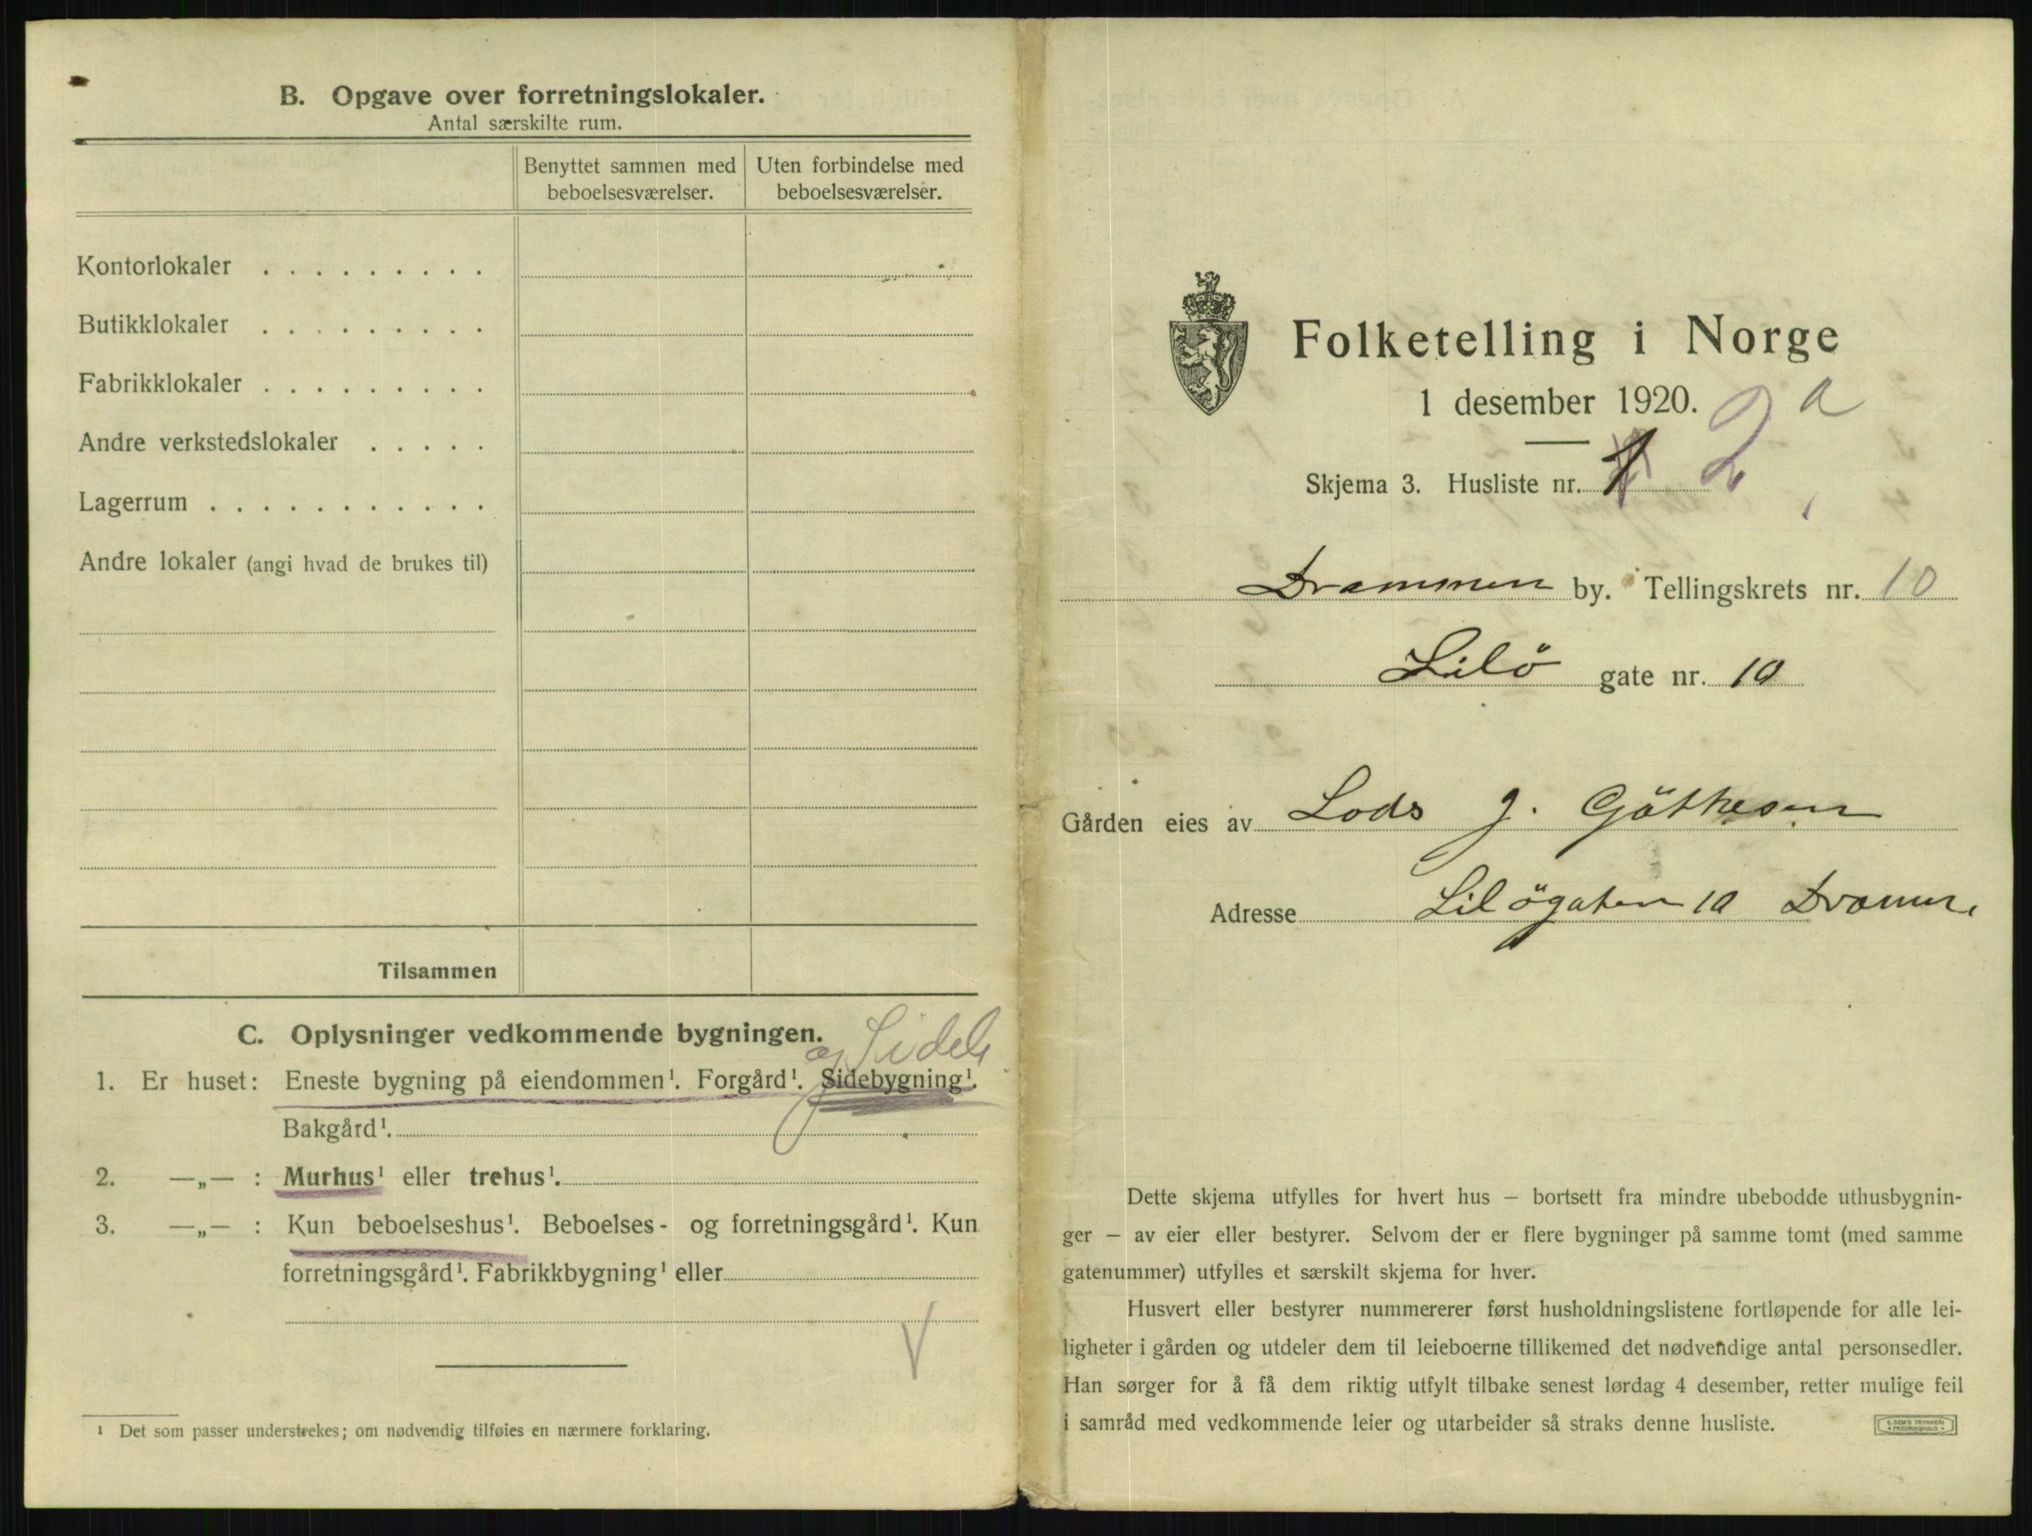 B. Opgave over forretningslokaler.
Antal særskilte rum.
Benyttet sammen med beboelsesværelser.
Uten forbindelse med beboelsesværelser.
Kontorlokaler . . . . . . . . .
Butikklokaler . . . . . . . . .
Fabrikklokaler . . . . . . . . .
Andre verkstedslokaler . . . . .
Lagerrum . . . . . . . . . . . .
Andre lokaler (angi hvad de brukes til)
Tilsammen
C. Oplysninger vedkommende bygningen.
og Sideb.
1. Er huset: Eneste bygning på eiendommen¹. Forgård¹. Sidebygning¹.
Bakgård¹.
2. —„— : Murhus¹ eller trehus¹.
3. —„— : Kun beboelseshus¹. Beboelses- og forretningsgård¹. Kun
forretningsgård¹. Fabrikkbygning¹ eller
V
¹ Det som passer understrekes; om nødvendig tilføies en nærmere forklaring.
Folketelling i Norge
1 desember 1920.
Skjema 3. Husliste nr. 1 2 a
Drammen by. Tellingskrets nr. 10
Lilö gate nr. 10
Gården eies av Lods J. Göthesen
Adresse Lilögaten 10 Dramm.
Dette skjema utfylles for hvert hus – bortsett fra mindre ubebodde uthusbygnin-
ger – av eier eller bestyrer. Selvom der er flere bygninger på samme tomt (med samme
gatenummer) utfylles et særskilt skjema for hver.
Husvert eller bestyrer nummererer først husholdningslistene fortløpende for alle lei-
ligheter i gården og utdeler dem til leieboerne tillikemed det nødvendige antal personsedler.
Han sørger for å få dem riktig utfylt tilbake senest lørdag 4 desember, retter mulige feil
i samråd med vedkommende leier og utarbeider så straks denne husliste.